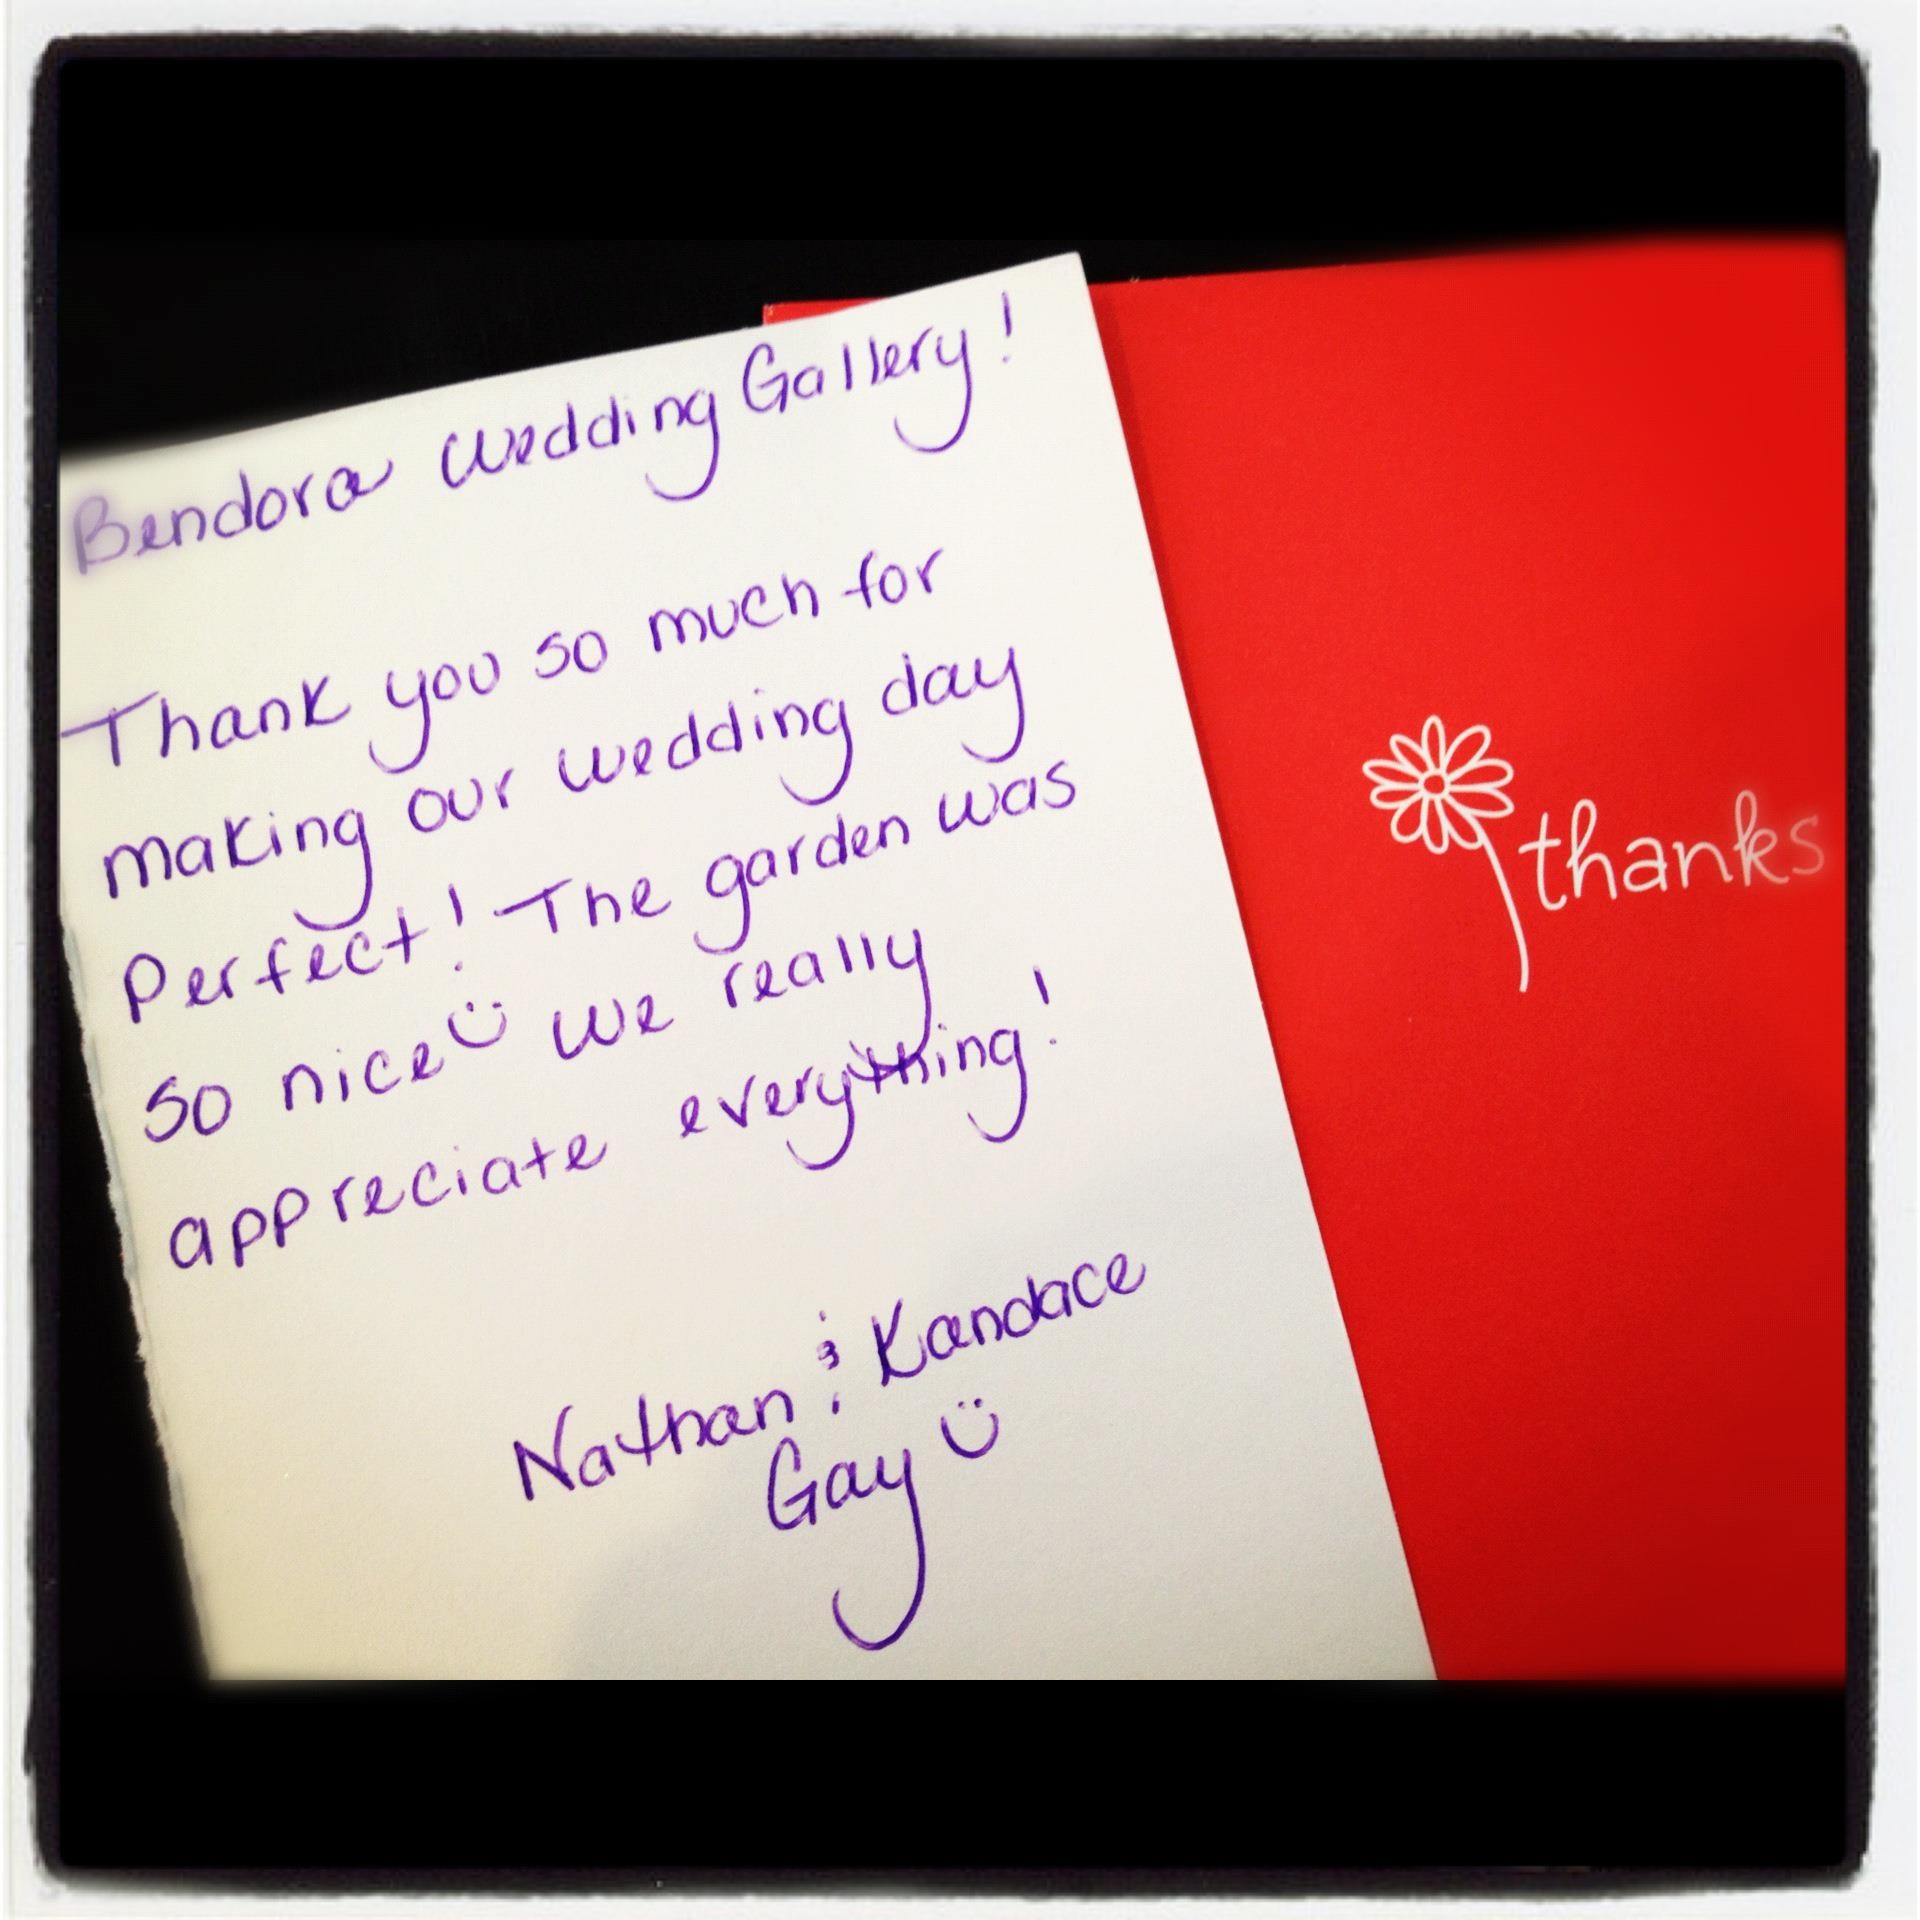 Bendora Wedding Gallery!
Thank you so much for
making our wedding day
Perfect! The garden was
so nice We really
appreciate everything!
Nathan & Kandace
Gay
thanks